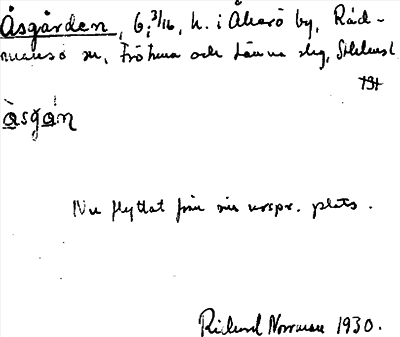 Åsgården, 6; 3/16, h. i Åkerö by, Råd-
mansö sn, Frötuna och Länna slg, Sthlms l
åsgån
Nu flyttat från sin urspr. plats.
Rickard Norrman 1930.